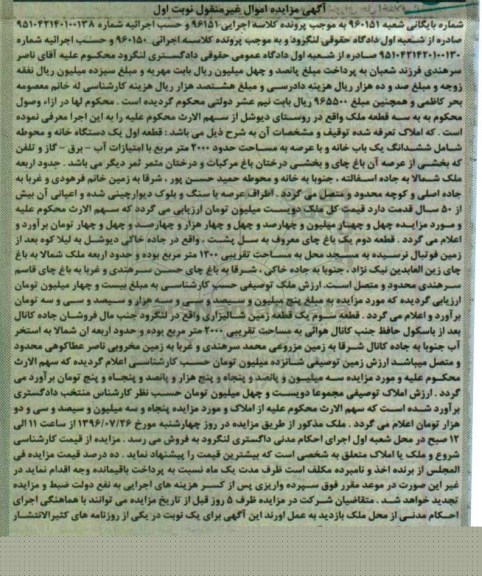 آگهی مزایده اموال غیرمنقول نوبت اول
شماره بایگانی شعبه ۹۶۰۱۵۱ به موجب پرونده کلاسه اجرایی ۹۶۱۵۱ و حسب اجرائیه شماره ۹۵۱۰۴۲۱۴۲۰۱۰۰۱۳۸
صادره از شعبه اول دادگاه حقوقی لنگرود و به موجب پرونده کلاسه اجرائی ۹۶۰۱۵۰ و حسب اجرائیه شماره
۹۵۱۰۴۲۱۴۲۰۱۰۰۱۳۰ صادره از شعبه اول دادگاه عمومی حقوقی دادگستری لنگرود محکوم علیه آقای ناصر
سرهندی فرزند شعبان به پرداخت مبلغ پانصد و چهل میلیون ریال بابت مهریه و مبلغ سیزده میلیون ریال نفقه
زوجه و مبلغ صد و ده هزار ریال هزینه دادرسی و مبلغ هشتصد هزار ریال هزینه کارشناسی له خانم معصومه
بحر کاظمی و همچنین مبلغ ۹۶۵۵۰۰ ریال بابت نیم عشر دولتی محکوم گردیده است . محکوم لها در ازاء وصول
محکوم به به سه قطعه ملک واقع در روستای دیوشل از سهم الارث محکوم علیه را به این اجرا معرفی نموده
است . که املاک تعرفه شده توقیف و مشخصات آن به شرح ذیل می باشد : قطعه اول یک دستگاه خانه و محوطه
شامل ششدانگ یک باب خانه و با عرصه به مساحت حدود ۲۰۰۰ متر مربع با امتیازات آب - برق - گاز و تلفن
که بخشی از عرصه آن باغ چای و بخشی درختان باغ مرکبات و درختان مثمر ثمر دیگر می باشد . حدود اربعه
ملک شمالا به جاده اسفالته ، جنوبا به خانه و محوطه حمید حسن پور ، شرقا به زمین خانم فرهودی و غربا به
جاده اصلی و کوچه محدود و متصل می گردد . اطراف عرصه با سنگ و بلوک دیوارچینی شده و اعیانی آن بیش
از ۵۰ سال قدمت دارد قیمت کل ملک دویست میلیون تومان ارزیابی می گردد که سهم الارث محکوم علیه
و مورد مزایده چهل و چهار میلیون و چهارصد و چهل و چهار هزار و چهارصد و چهل و چهار تومان برآورد و
اعلام می گردد . قطعه دوم یک باغ چای معروف به سل پشت . واقع در جاده خاکی دیوشل به لیلا کوه بعد از
زمین فوتبال نرسیده به مسجد محل به مساحت تقریبی ۱۲۰۰ متر مربع بوده و حدود اربعه ملک شمالا به باغ
چای زین العابدین نیک نژاد ، جنوبا به جاده خاکی ، شرقا به باغ چای حسن سرهندی و غربا به باغ چای قاسم
سرهندی محدود و متصل است. ارزش ملک توصیفی حسب کارشناسی به مبلغ بیست و چهار میلیون تومان
ارزیابی گردیده که مورد مزایده به مبلغ پنج میلیون و سیصد و سی و سه هزار و سیصد و سی و سه تومان
برآورد و اعلام می گردد . قطعه سوم یک قطعه زمین شالیزاری واقع در لنگرود جنب مال فروشان جاده کانال
بعد از باسکول حافظ جنب کانال هوائی به مساحت تقریبی ۲۰۰۰ متر مربع بوده و حدود اربعه آن شمالا به استخر
آب جنوبا به جاده کانال شرقا به زمین مزروعی محمد سرهندی و غربا به زمین مخروبی ناصر عطاکوهی محدود
و متصل میباشد ارزش زمین توصیفی شانزده میلیون تومان حسب کارشناسی اعلام گردیده که سهم الارث
محکوم علیه و مورد مزایده سه میلیون و پانصد و پنجاه و پنج هزار و پانصد و پنجاه و پنج تومان برآورد می
گردد . ارزش املاک توصیفی مجموعا دویست و چهل میلیون تومان حسب نظر کارشناس منتخب دادگستری
برآورد شده است که سهم الارث محکوم علیه از املاک و مورد مزایده پنجاه و سه میلیون و سیصد و سی و دو
هزار تومان اعلام می گردد . ملک مذکور از طریق مزایده در روز چهارشنبه مورخ ۱۳۹۶/۰۷/۲۶ از ساعت ۱۱ الی
۱۲ صبح در محل شعبه اول اجرای احکام مدنی دادگستری لنگرود به فروش می رسد . مزایده از قیمت کارشناسی
شروع و ملک یا املاک متعلق به شخصی است که بیشترین قیمت را پیشنهاد نماید . ده درصد قیمت مزایده فی
المجلس از برنده اخذ و نامبرده مکلف است ظرف مدت یک ماه نسبت به پرداخت باقیمانده وجه اقدام نماید در
غیر این صورت در موعد مقرر فوق سپرده واریزی پس از کسر هزینه های اجرایی به نفع دولت ضبط و مزایده
تجدید خواهد شد . متقاضیان شرکت در مزایده ظرف ۵ روز قبل از تاریخ مزایده می توانند با هماهنگی اجرای
احکام مدنی از محل ملک بازدید به عمل اورند این آگهی برای یک نوبت در یکی از روزنامه های کثیرالانتشار